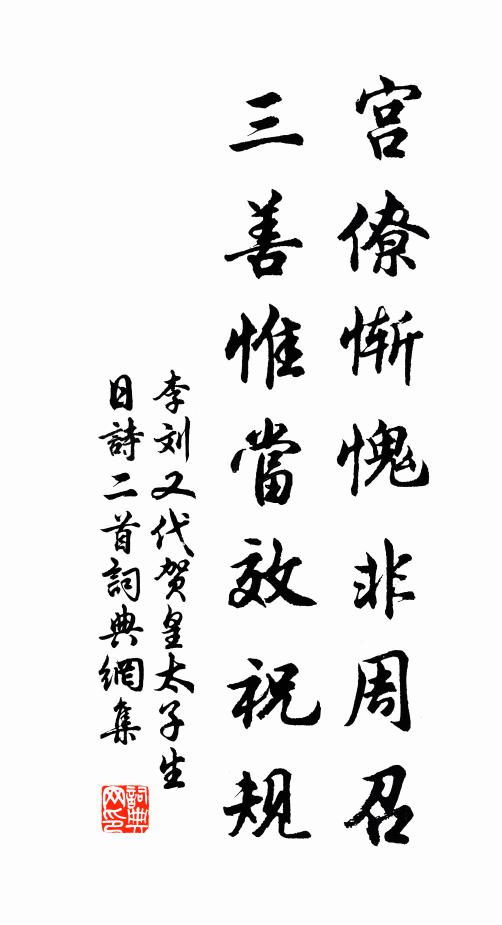 宫僚慚愧非周召
三善惟當效祝規
李刘又代贺皇太子生
日詩二首詞典網集
詞典
网印